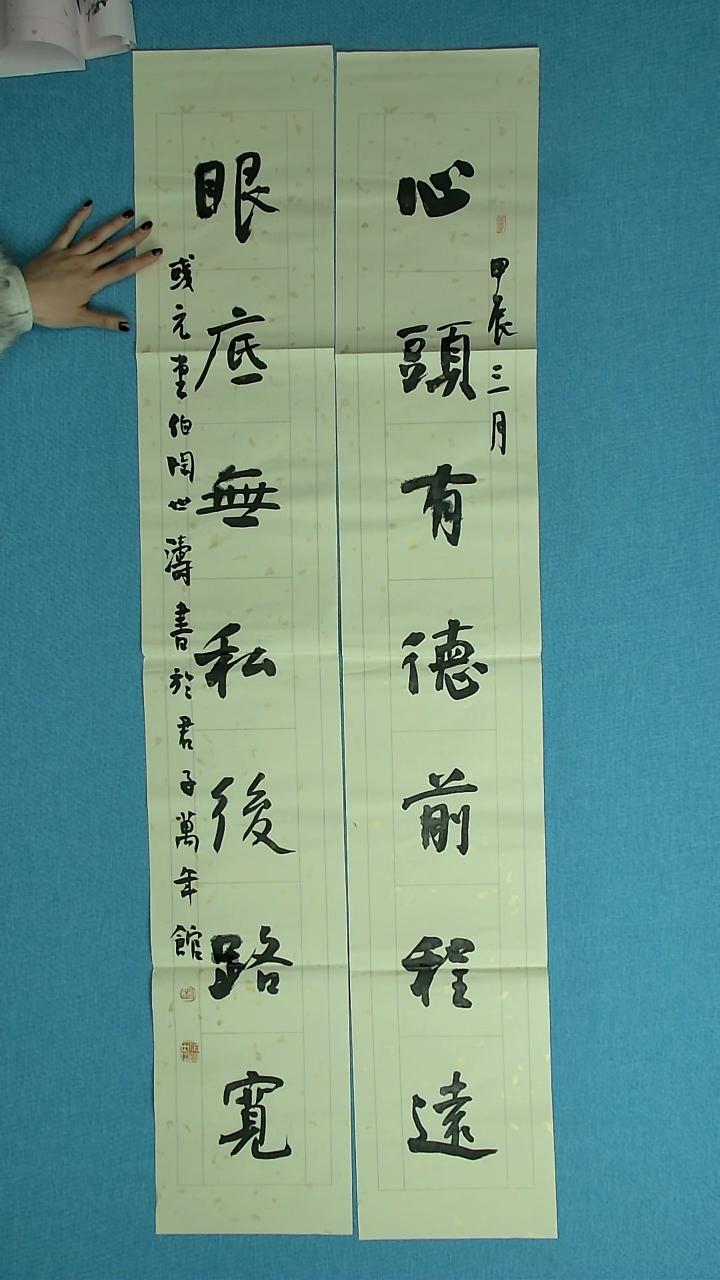 心頭有德前程遠
甲辰三月
眼底無私後路寬
或元堂伯閏世濤書於君子萬年館